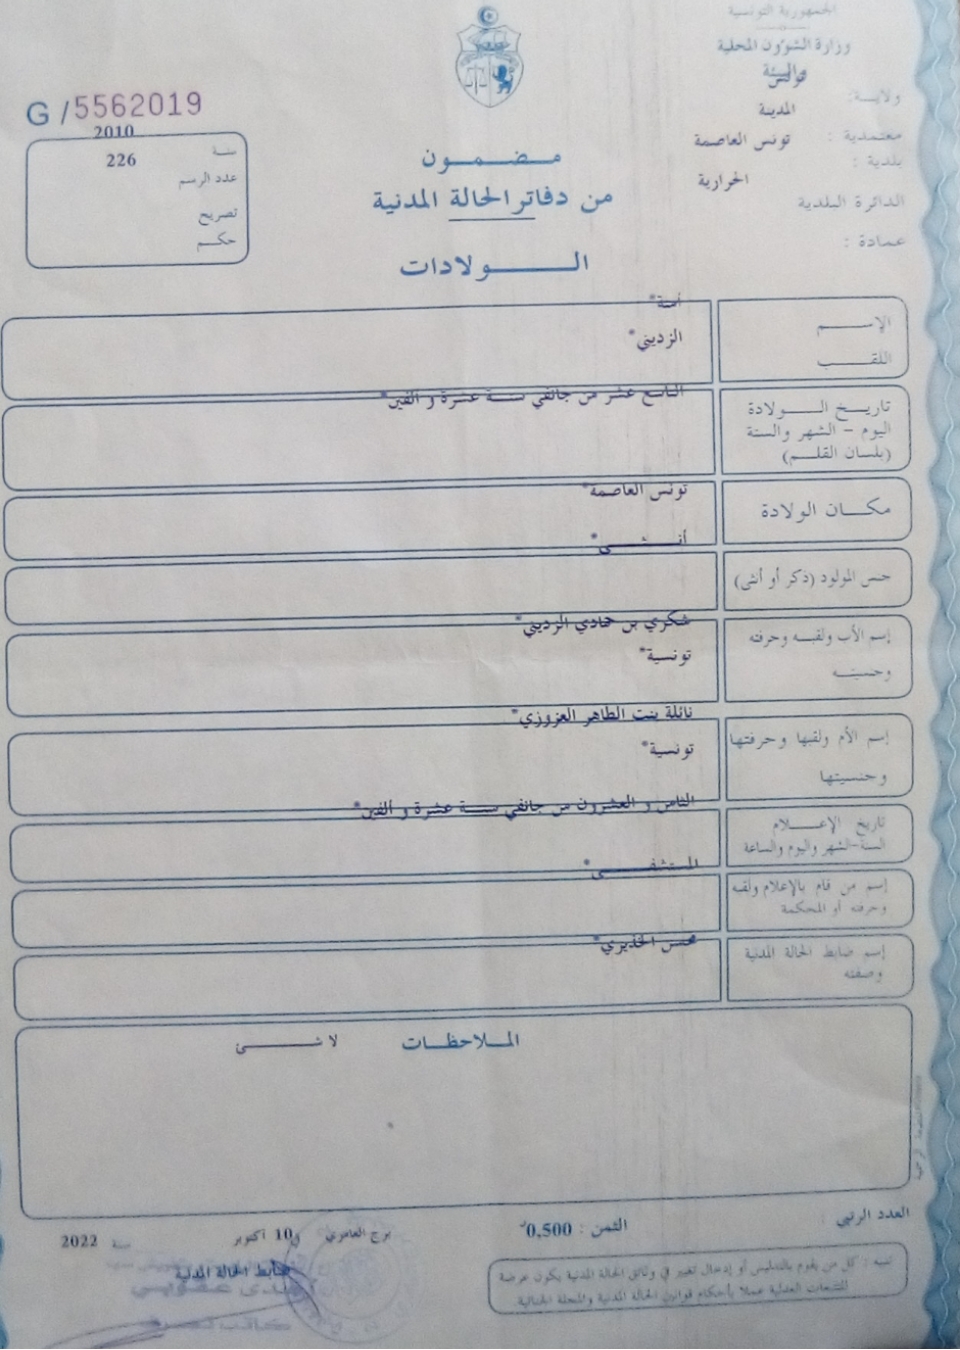 الجمهورية التونسية
وزارة الشؤون المحلية
والبيئة
تونس
ولاية:
المدينة
معتمدية :
تونس العاصمة
بلدية :
الحرايرية
الدائرة البلدية
عمادة :
G /5562019
2010
سنة
226
عدد الرسم
تصريح
حكم
مضمون
من دفاتر الحالة المدنية
الولادات
الإسم
أمنة*
اللقب
الزديني*
تاريخ الولادة
اليوم – الشهر والسنة
(بلسان القلم)
التاسع عشر من جانفي سنة عشرة و ألفين*
مكان الولادة
تونس العاصمة*
جنس المولود (ذكر أو أنثى)
أنثى*
إسم الأب ولقبه وحرفته
وجنسيته
شكري بن حمادي الزديني*
تونسية*
إسم الأم ولقبها وحرفتها
وجنسيتها
نائلة بنت الطاهر العزوزي*
تونسية*
تاريخ الإعلام
السنة-الشهر واليوم والساعة
الثامن و العشرون من جانفي سنة عشرة و ألفين*
إسم من قام بالإعلام ولقبه
وحرفته أو المحكمة
المستشفى*
إسم ضابط الحالة المدنية
وصفته
محسن الخذيري*
الملاحظات
لا شئ
العدد الرتبي :
الثمن : 0,500
برج العامري في 10 أكتوبر سنة 2022
ضابط الحالة المدنية
تنبيه : كل من يقوم بالتدليس أو إدخال تغيير في وثائق الحالة المدنية يكون عرضة
للتتبعات العدلية عملا بأحكام قوانين الحالة المدنية والمجلة الجنائية